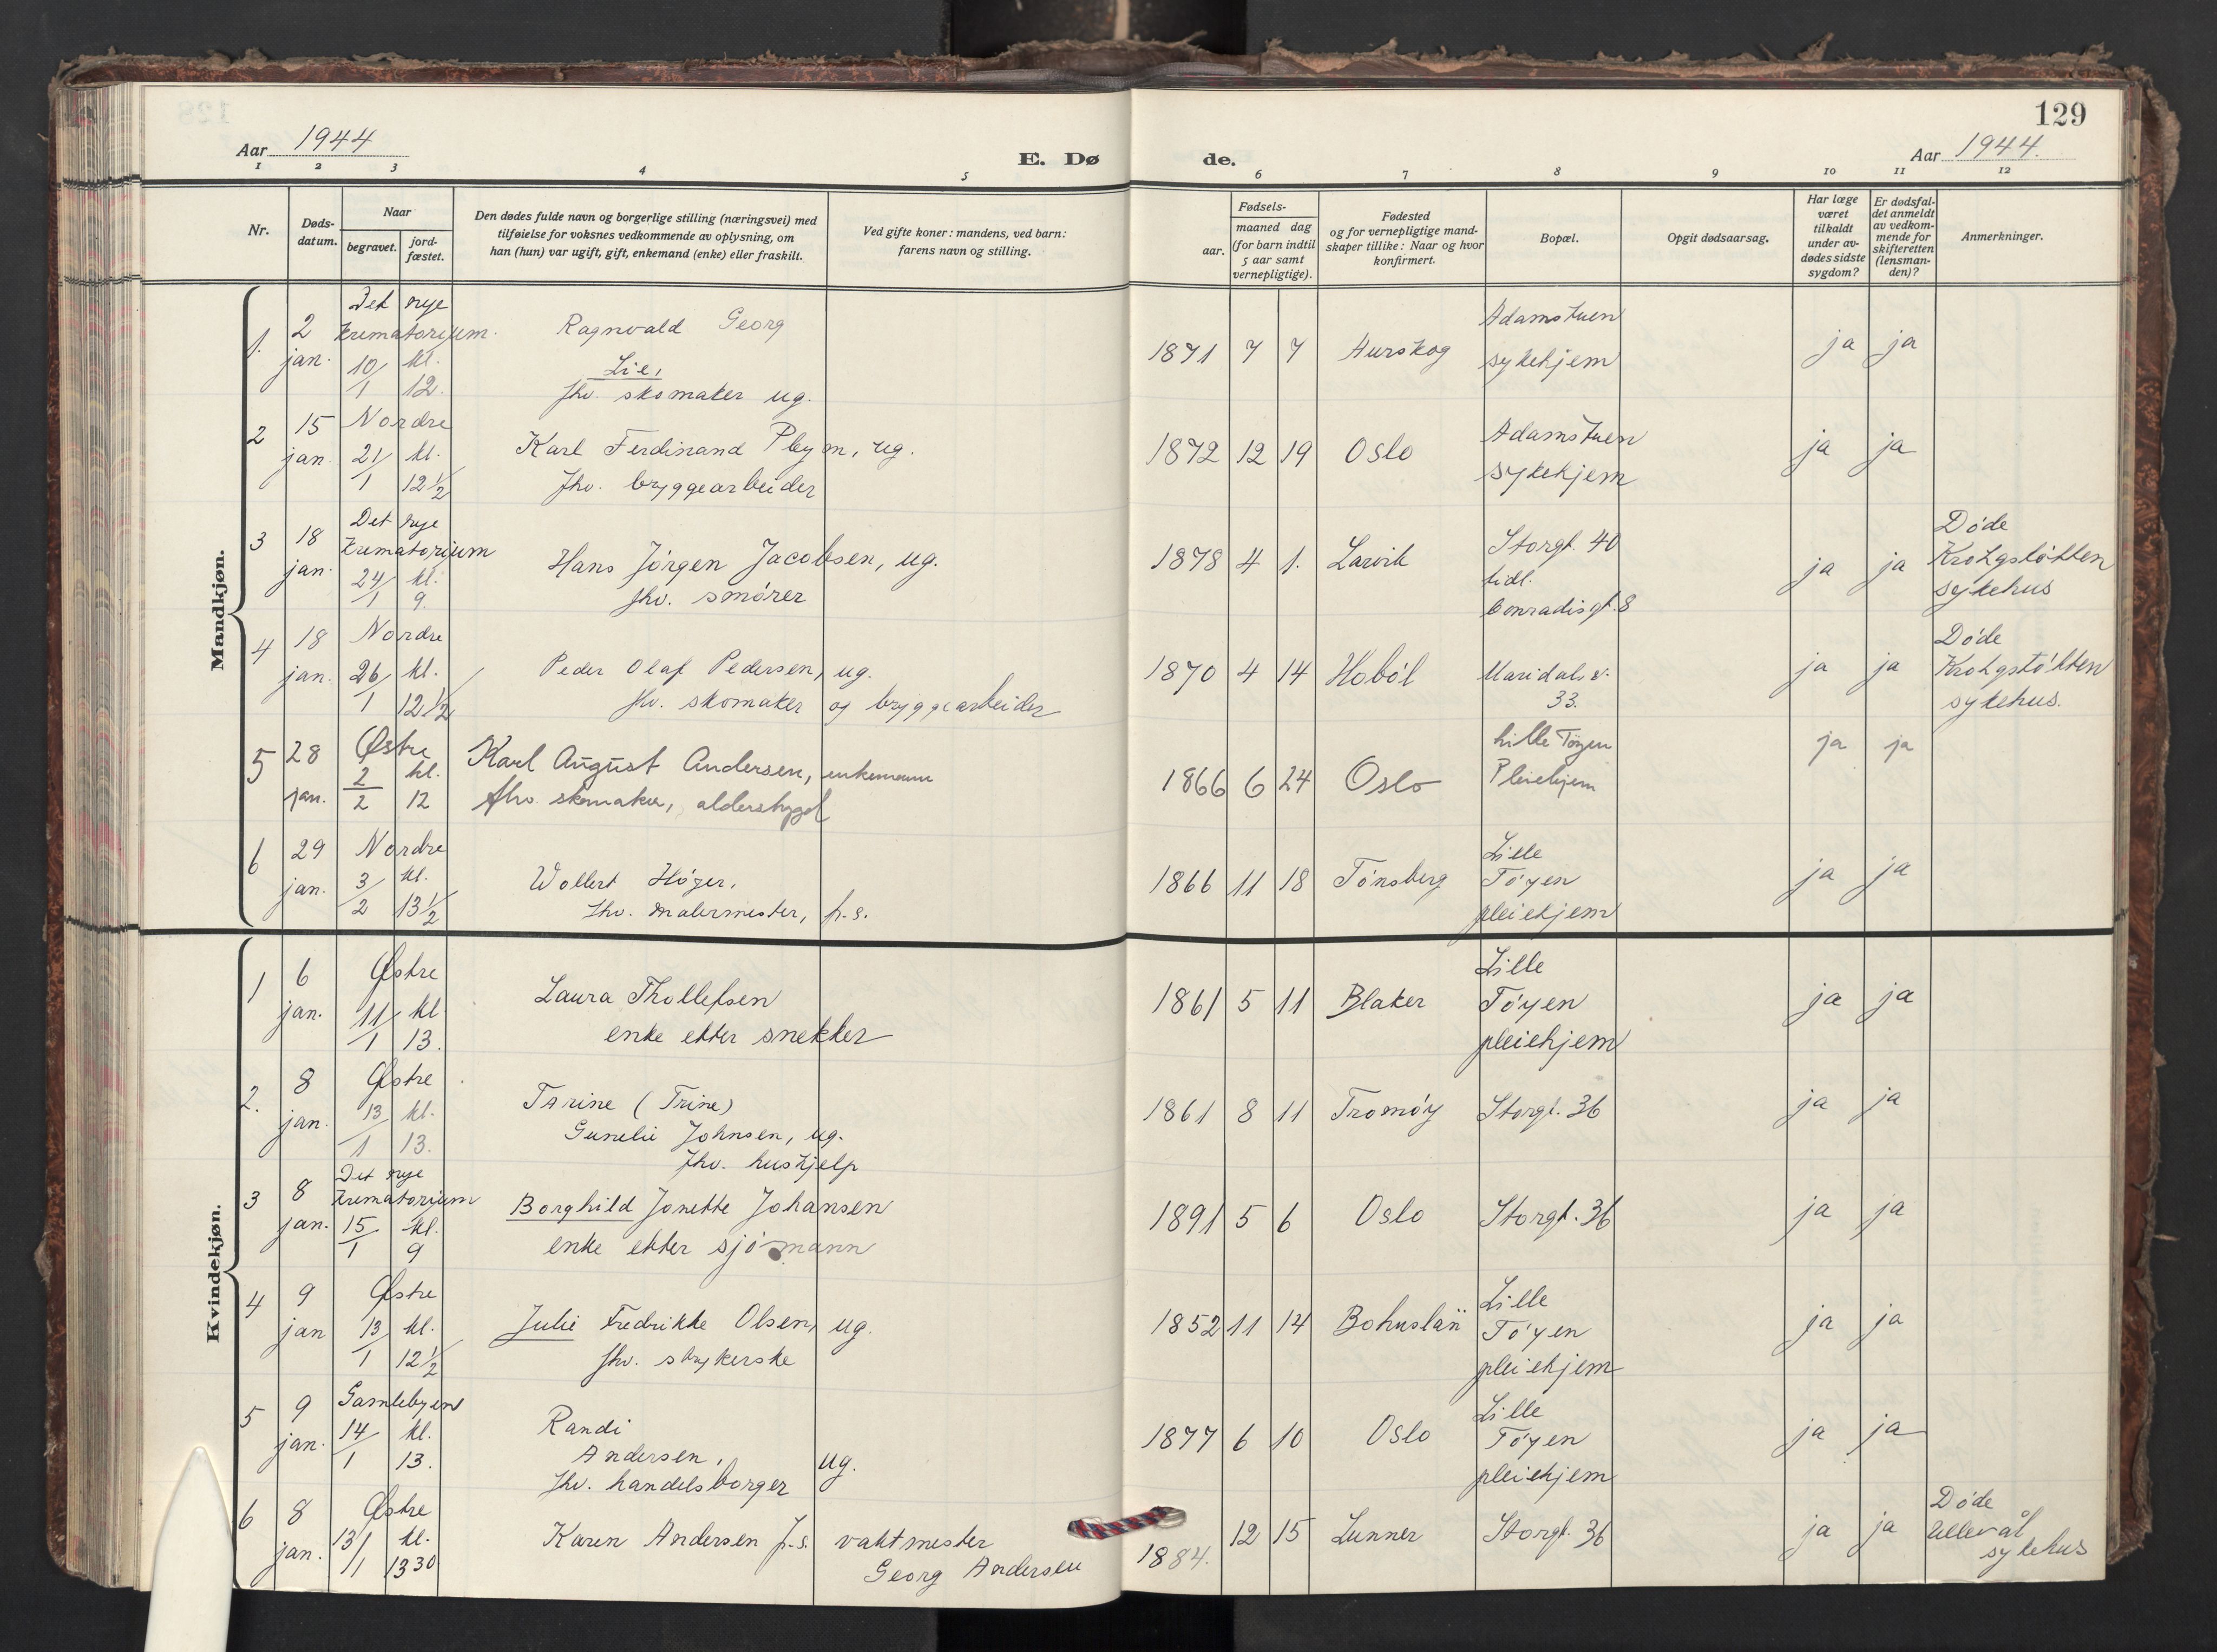 129
Aar 1944
E. Døde.
Aar 1944.
1 2 3 4 5 6 7 8 9 10 11 12
Nr.
Døds-
datum.
Naar
begravet.
jord-
fæstet.
Den dødes fulde navn og borgerlige stilling (næringsvei) med
tilføielse for voksnes vedkommende av oplysning, om
han (hun) var ugift, gift, enkemand (enke) eller fraskilt.
Ved gifte koner: mandens, ved barn:
farens navn og stilling.
Fødsels-
aar.
maaned dag
(for barn indtil
5 aar samt
vernepligtige).
Fødested
og for vernepligtige mand-
skaper tillike: Naar og hvor
konfirmert.
Bopæl.
Opgit dødsaarsag.
Har læge
været
tilkaldt
under av-
dødes sidste
sygdom?
Er dødsfal-
det anmeldt
av vedkom-
mende for
skifteretten
(lensman-
den)?
Anmerkninger.
Mandkjøn.
1. 2 jan. Det nye Krematorium. 10/1 kl. 12.
Ragnvald Georg
Lie,
fhv. skomaker ug.
1871 7 7 Aurskog
Adamstuen
sykehjem
ja ja
2 15 jan. Nordre 21/1 kl. 12 1/2
Karl Ferdinand Pleym, ug.
fhv. bryggearbeider
1872 12 19 Oslo
Adamstuen
sykehjem
ja ja
3 18 jan. Det nye Krematorium 24/1 kl. 9.
Hans Jörgen Jacobsen, ug.
fhv. smörer
1878 4 1. Larvik
Storgt. 40
tidl.
Conradisgt. 8
ja ja
Döde
Krohgstötten
sykehus
4 18 jan. Nordre 26/1 kl. 12 1/2
Peder Olaf Pedersen, ug.
fhv. skomaker og bryggearbeider
1870 4 14 Hoböl
Maridalsv.
33.
ja ja
Döde
Krohgstötten
sykehus.
5 28 jan. Østre 2/2 kl. 12
Karl August Andersen, enkemann
fhv. skomaker, alderstrygd
1866 6 24 Oslo
Lille Töyen
Pleiehjem
ja ja
6 29 jan. Nordre 3/2 kl. 13 1/2
Wollert Höyer,
fhv. malermester, f.s.
1866 11 18 Tönsberg
Lille
Töyen
pleiehjem
ja ja
Kvindekjøn.
1 6 jan. Østre 11/1 kl 13.
Laura Thollefsen
enke etter snekker
1861 5 11 Blaker
Lille
Töyen
pleiehjem
ja ja
2. 8 jan. Østre 13/1 kl. 13.
Tarine (Trine)
Gunelie Johnsen, ug.
fhv. hushjelp
1861 8 11 Tromöy
Storgt. 36
ja ja
3 8 jan. Det nye Krematorium 15/1 kl. 9
Borghild Jonette Johansen
enke etter sjömann
1891 5 6 Oslo
Storgt. 36
ja ja
4 9 jan Østre 13/1 kl. 12 1/2
Julie Fredrikke Olsen, ug.
fhv. strykerske
1852 11 14 Bohuslän
Lille
Töyen
pleiehjem
ja ja
5 9 jan. Gamlebyen 14/1 kl. 13.
Randi
Andersen, ug.
fhv. handelsborger
1877 6 10 Oslo
Lille
Töyen
pleiehjem
ja ja
6 8 jan. Østre 13/1 kl. 13 30
Karen Andersen f.s. vaktmester
Georg Andersen
1884. 12 15 Lunner
Storgt. 36
ja ja
Döde
Ullevål
sykehus